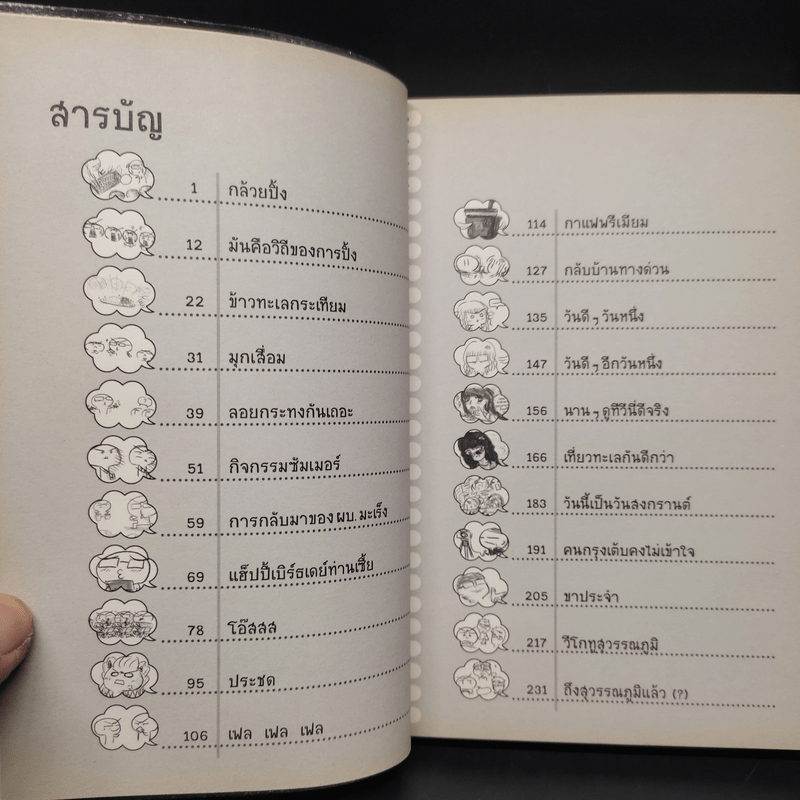 สารบัญ
1 กล้วยปิ้ง
12 มันคือวิถีของการปิ้ง
22 ข้าวทะเลกระเทียม
31 มุกเสื่อม
39 ลอยกระทงกันเถอะ
51 กิจกรรมซัมเมอร์
59 การกลับมาของ ผบ. มะเร็ง
69 แฮ็ปปี้เบิร์ธเดย์ท่านเซี้ย
78 โอ๊สสส
95 ประชด
106 เฟล เฟล เฟล
114 กาแฟพรีเมียม
127 กลับบ้านทางด่วน
135 วันดี ๆ วันหนึ่ง
147 วันดี ๆ อีกวันหนึ่ง
156 นาน ๆ ดูทีวีนี่ดีจริง
166 เที่ยวทะเลกันดีกว่า
183 วันนี้เป็นวันสงกรานต์
191 คนกรุงเต้บคงไม่เข้าใจ
205 ขาประจำ
217 วีโกทูสุวรรณภูมิ
231 ถึงสุวรรณภูมิแล้ว (?)